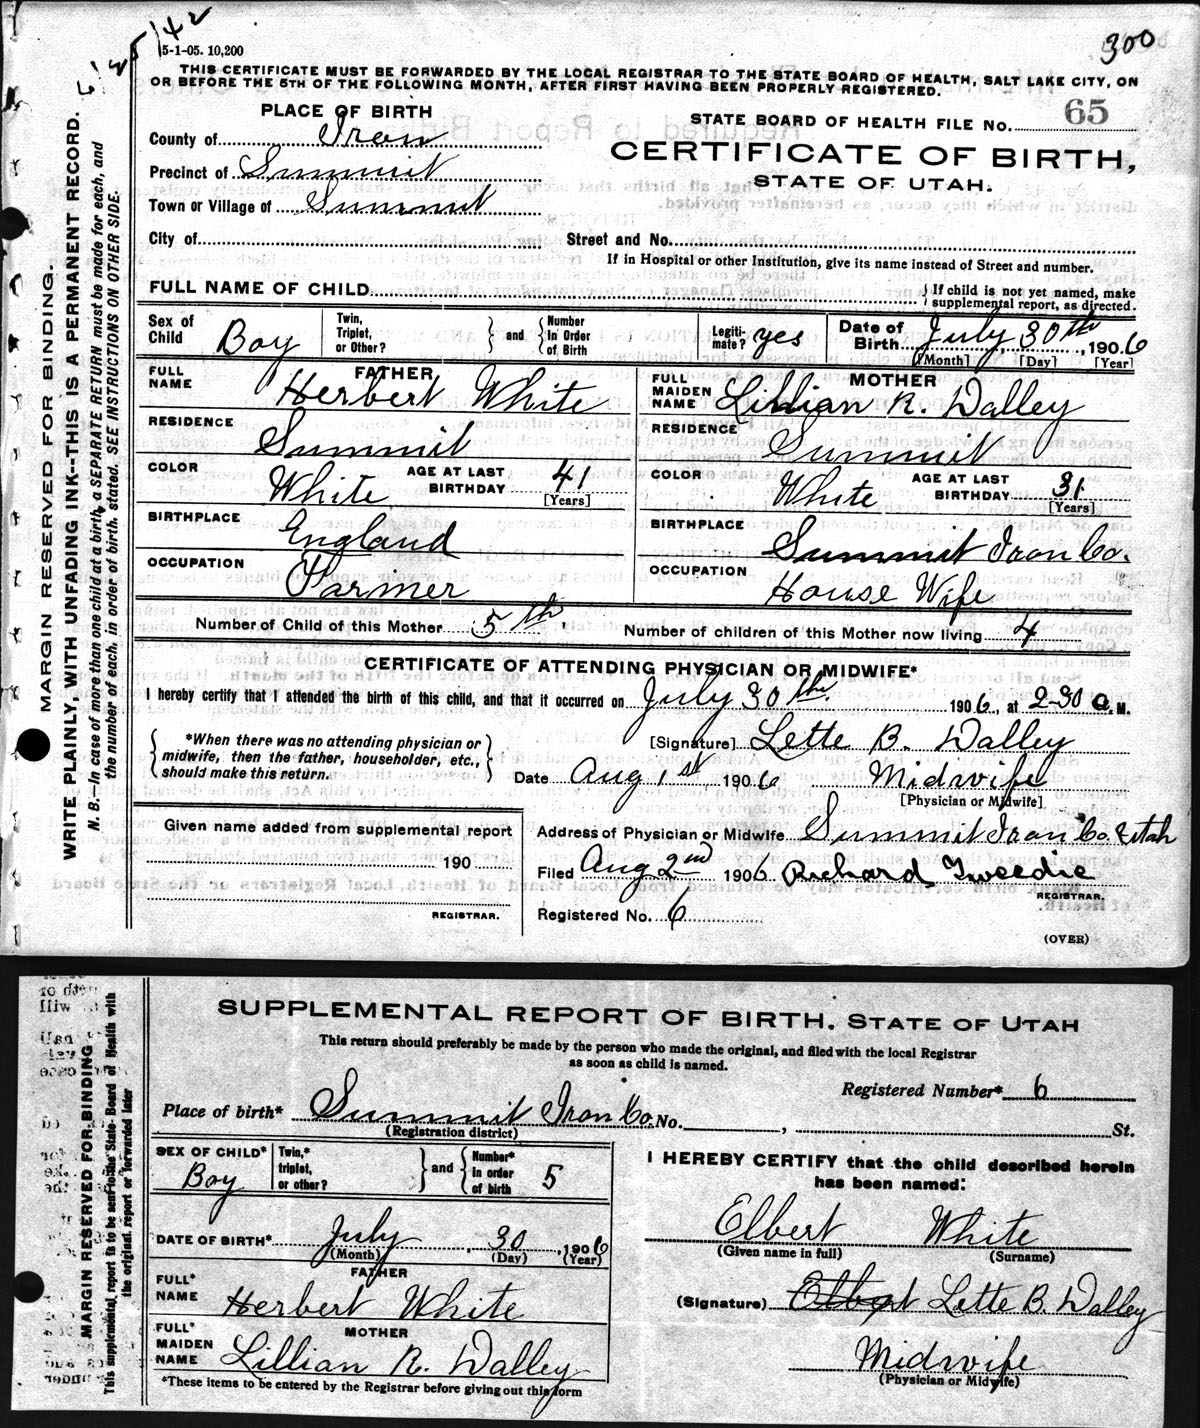 5-1-05. 10,200
300
THIS CERTIFICATE MUST BE FORWARDED BY THE LOCAL REGISTRAR TO THE STATE BOARD OF HEALTH, SALT LAKE CITY, ON
OR BEFORE THE 5TH OF THE FOLLOWING MONTH, AFTER FIRST HAVING BEEN PROPERLY REGISTERED.
PLACE OF BIRTH
County of Iron
Precinct of Summit
Town or Village of Summit
City of
STATE BOARD OF HEALTH FILE NO. 65
CERTIFICATE OF BIRTH,
STATE OF UTAH.
Street and No.
If in Hospital or other Institution, give its name instead of Street and number.
FULL NAME OF CHILD
{ If child is not yet named, make
supplemental report, as directed.
Sex of Child Boy
Twin, Triplet, or Other?
} and { Number In Order of Birth
Legitimate? yes
Date of Birth July 30th, 1906
[Month] [Day] [Year]
FATHER
FULL NAME Herbert White
RESIDENCE Summit
COLOR White AGE AT LAST BIRTHDAY 41
[Years]
BIRTHPLACE England
OCCUPATION Farmer
MOTHER
FULL MAIDEN NAME Lillian R. Dalley
RESIDENCE Summit
COLOR White AGE AT LAST BIRTHDAY 31
[Years]
BIRTHPLACE Summit Iron Co.
OCCUPATION House Wife
Number of Child of this Mother 5th Number of children of this Mother now living 4
CERTIFICATE OF ATTENDING PHYSICIAN OR MIDWIFE*
I hereby certify that I attended the birth of this child, and that it occurred on July 30th 1906, at 2-30 a M.
{ *When there was no attending physician or
midwife, then the father, householder, etc.,
should make this return. }
[Signature] Lette B. Dalley
Date Aug 1st 1906 Midwife
[Physician or Midwife]
Given name added from supplemental report
190
REGISTRAR.
Address of Physician or Midwife Summit Iron Co. Utah
Filed Aug 2nd 1906 Richard Tweedie
REGISTRAR.
Registered No. 6
(OVER)
MARGIN RESERVED FOR BINDING.
WRITE PLAINLY, WITH UNFADING INK--THIS IS A PERMANENT RECORD.
N. B.—In case of more than one child at a birth, a SEPARATE RETURN must be made for each, and
the number of each, in order of birth, stated. SEE INSTRUCTIONS ON OTHER SIDE.
SUPPLEMENTAL REPORT OF BIRTH. STATE OF UTAH
This return should preferably be made by the person who made the original, and filed with the local Registrar
as soon as child is named.
Registered Number* 6
Place of birth* Summit Iron Co. No. , St.
(Registration district)
SEX OF CHILD* Boy
Twin,* triplet, or other?
} and { Number* In order of birth 5
DATE OF BIRTH* July 30, 1906
(Month) (Day) (Year)
FATHER
FULL* NAME Herbert White
MOTHER
FULL* MAIDEN NAME Lillian R. Dalley
*These items to be entered by the Registrar before giving out this form
I HEREBY CERTIFY that the child described herein
has been named:
Elbert White
(Given name in full) (Surname)
(Signature) Lette B. Dalley
Midwife
(Physician or Midwife)
MARGIN RESERVED FOR BINDING
This supplemental report is to be sent to the State Board of Health with
the original report or forwarded later